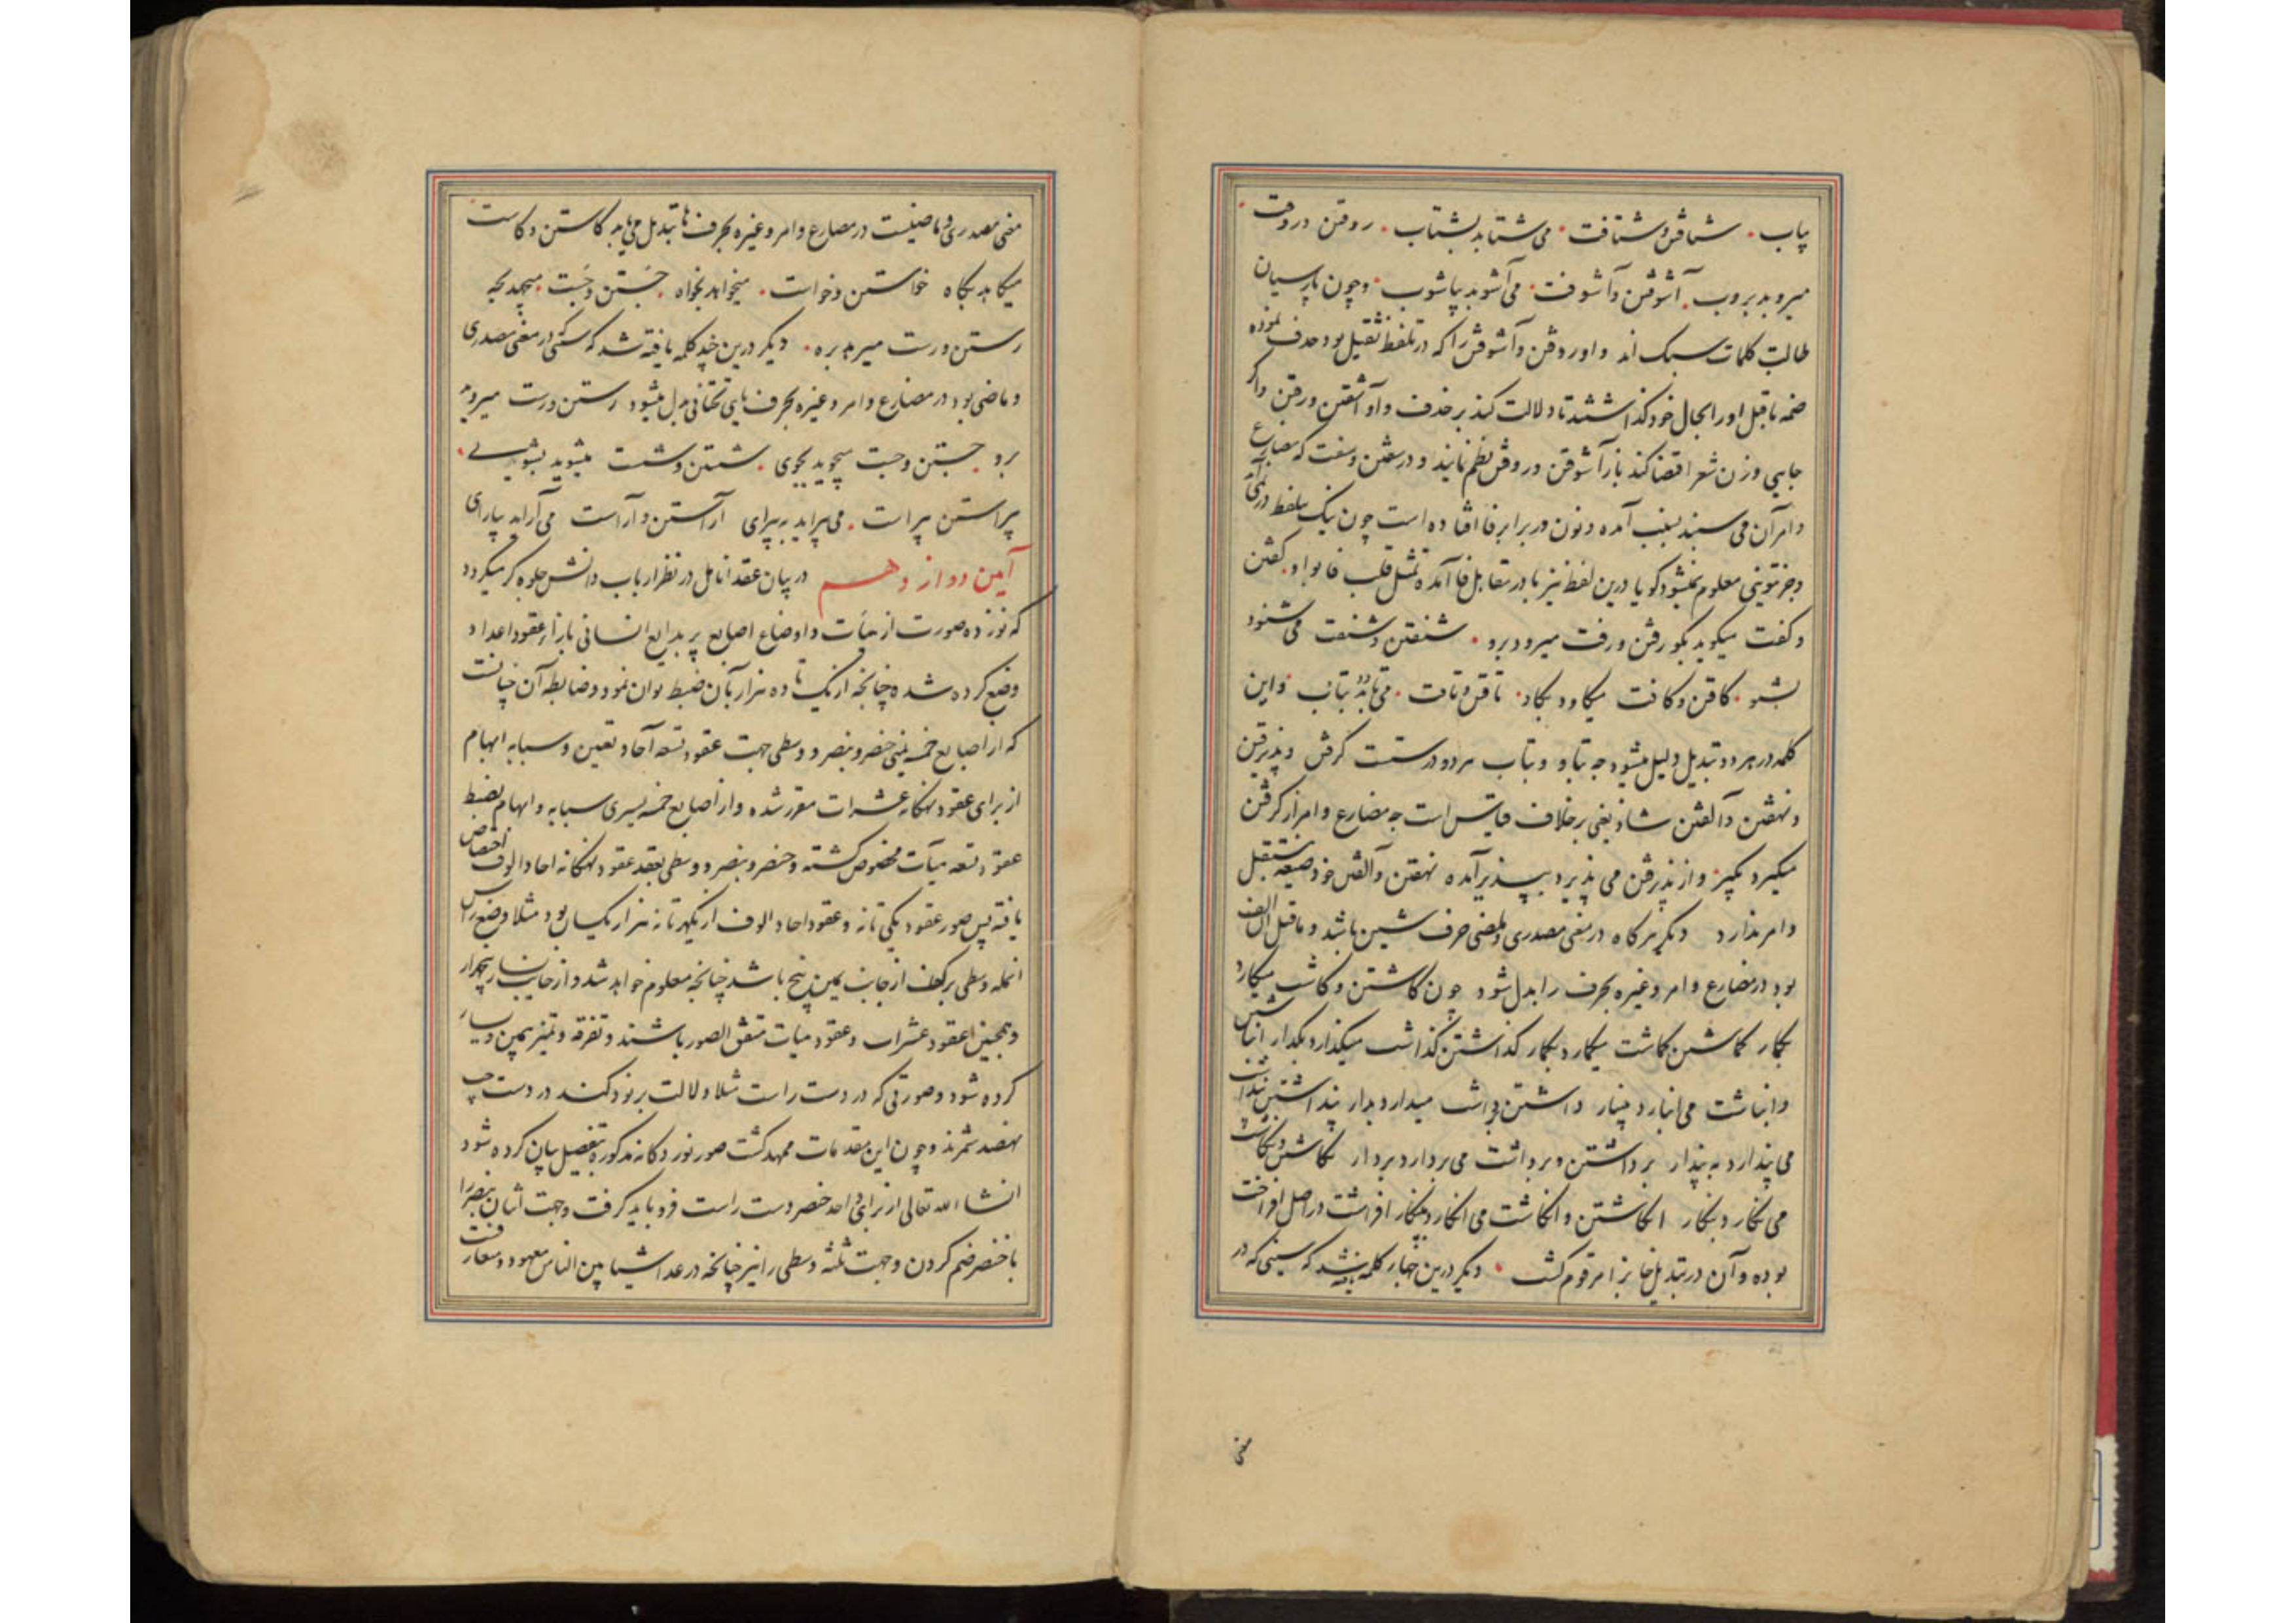 یاب . شتافتن و شتافت . می شتابد بشتاب . روفتن و روفت .
میروبد بروب . آشوفتن و آشوفت . می آشوبد بیاشوب . و چون پارسیان
طالب کلمات سبک اند واو روفتن و آشوفتن را که در تلفظ ثقیل بود حذف نموده
ضمه ماقبل او را بحال خود گذاشتند تا دلالت کند بر حذف واو آشفتن و رفتن و اگر
جایی وزن شعر اقتضا کند باز آشوفتن و روفتن نظم نمایند و در سفتن و سفت که مضارع
و امر آن می سنبد بسنب آمده و نون در برابر فا افتاده است چون نیک تلفظ در
و جز نونی معلوم نمیشود گویا درین لفظ نیز با در مقابل فا آمده تمثیل قلب فا بواو . گفتن
و گفت میگوید بگو رفتن و رفت میرود برو . شنفتن و شنفت می شنود
بشنو . کافتن و کافت میکاود بکاو . تافتن و تافت . می تابد بتاب و این
کلمه در هر دو تبدیل دلیل میشود چه بتاو و بتاب هر دو درستست گرفتن و پذیرفتن
و نهفتن و آلفتن شاذ یعنی برخلاف قیاس است چه مضارع و امر از گرفتن
میگیرد بگیر . و از پذیرفتن می پذیرد بپذیر آمده نهفتن و آلفتن خود صیغه مستقبل
و امر ندارد دیگر هرگاه در معنی مصدری و ماضی حرف شین باشد و ماقبل آن الف
بود در مضارع و امر و غیره بحرف را بدل شود چون کاشتن و کاشت میکارد
بکار گماشتن گماشت میگمارد بگمار گذاشتن گذاشت میگذارد بگذار انباشتن
و انباشت می انبارد بینبار داشتن داشت میدارد بدار پنداشتن پنداشت
می پندارد به پندار برداشتن و برداشت می بردارد بردار نگاشتن و نگاشت
می نگارد بنگار انگاشتن و انگاشت می انگارد بینگار افراشت در اصل افراخت
بوده و آن در تبدیل خا بزا مرقوم گشت . دیگر درین چهار کلمه سینی که در
معنی
معنی مصدری و ماضیست در مضارع و امر و غیره بحرف ها تبدیل می یابد کاستن و کاست
میکاهد بکاه خواستن و خواست . میخواهد بخواه . جَستن و جَست . میجهد بجه
رستن و رست میرهد بره . دیگر درین چند کلمه یافته شد که سینی که در معنی مصدری
و ماضی بود در مضارع و امر و غیره بحرف یای تحتانی بدل میشود رستن و رست میروید
برو . جستن و جست میجوید بجوی . شستن و شست میشوید بشوی .
پیراستن پیراست . می پیراید بپیرای آراستن و آراست می آراید بیارای
آیین دوازدهم در بیان عقد انامل در نظر ارباب دانش جلوه گر میگردد
که نوزده صورت از هیأت و اوضاع اصابع پر بدایع انسانی بازار عقود اعداد
وضع کرده شده چنانچه از یک تا ده هزار بآن ضبط توان نمود و ضابطه آن چنانست
که از اصابع خمسه یمنی خنصر و بنصر و وسطی جهت عقود تسعه آحاد تعیین و سبابه ابهام
از برای عقود نهگانه عشرات مقرر شده و از اصابع خمسه یسری سبابه و ابهام بضبط
عقود تسعه میآت مخصوص گشته و خنصر و بنصر و وسطی بعقد عقود نهگانه احاد الوف اختصاص
یافته پس صور عقود یکی تا نه و عقود احاد الوف از یکهزار تا نه هزار یکسان بود مثلا وضع راس
انمله وسطی بر کف از جانب یمین پنج باشد چنانچه معلوم خواهد شد و از جانب یسار پنجهزار
و همچنین عقود عشرات و عقود میات متفق الصور باشند و تفرقه و تمیز بیمین و یسار
کرده شود و صورتی که در دست راست مثلا دلالت بر نود کند در دست چپ
نهصد شمرند و چون این مقدمات ممهد گشت صور نوزدگانه مذکوره بتفصیل بیان کرده شود
انشاء الله تعالی از برای واحد خنصر دست راست فرو باید گرفت و جهت اثنان بنصر را
با خنصر ضم کردن و جهت ثلثه وسطی را نیز چنانچه در عد اشیا بین الناس معهود و متعارفست